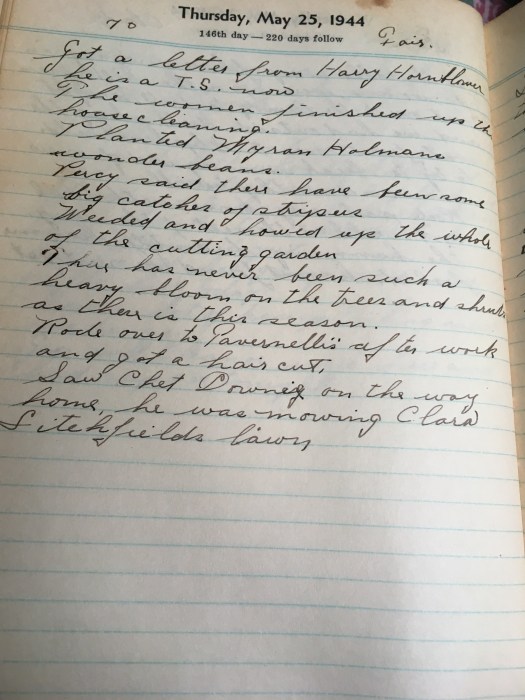 Thursday, May 25, 1944
70
146th day — 220 days follow
Fair.
Got a letter from Harry Hornflower
he is a T.S. now
The women finished up the
housecleaning.
Planted Myran Holmans
wonder beans.
Percy said there have been some
big catches of stripers
Weeded and howed up the whole
of the cutting garden
There has never been such a
heavy bloom on the trees and shrubs
as there is this season.
Rode over to Pavernelli's after work
and got a hair cut.
Saw Chet Downig on the way
home, he was mowing Clara
Litchfields lawn